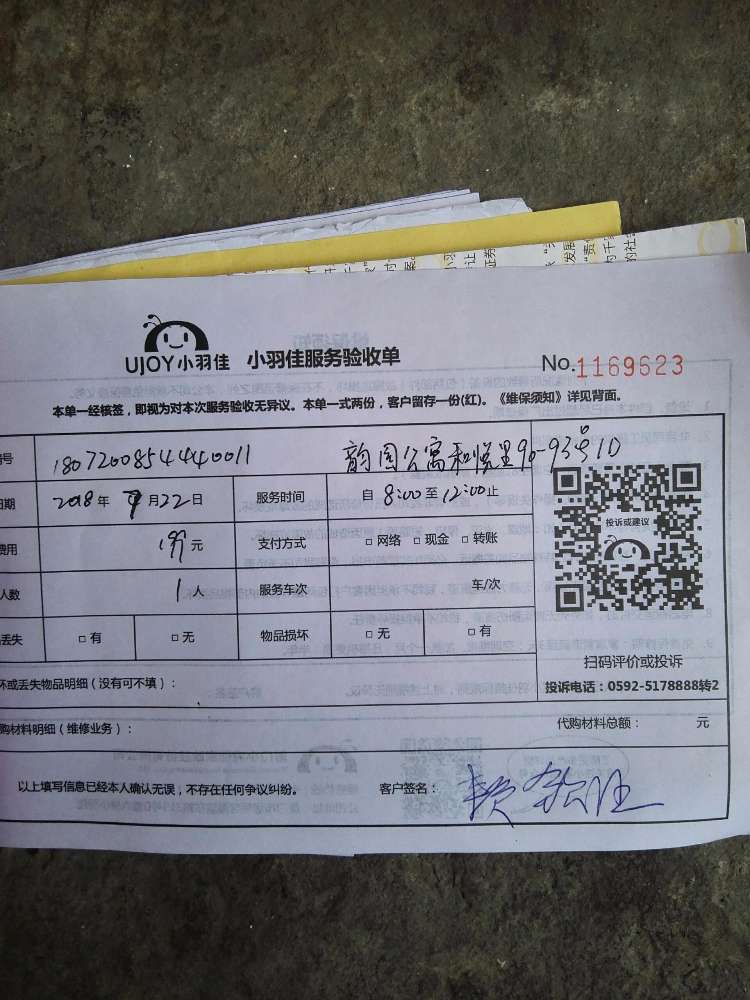 UJOY小羽佳 小羽佳服务验收单 No.1169623
本单一经核签，即视为对本次服务验收无异议。本单一式两份，客户留存一份(红)。《维保须知》详见背面。
号 1807200854440011 韵园公寓和悦里90-93号1D
日期 2018年 月22日 服务时间 自8:00至12:00止
费用 元 支付方式 □网络 □现金 □转账
人数 1人 服务车次 车/次
丢失 □有 □无 物品损坏 □无 □有
投诉或建议
扫码评价或投诉
投诉电话：0592-5178888转2
坏或丢失物品明细（没有可不填）：
购材料明细（维修业务）： 代购材料总额： 元
以上填写信息已经本人确认无误，不存在任何争议纠纷。 客户签名：